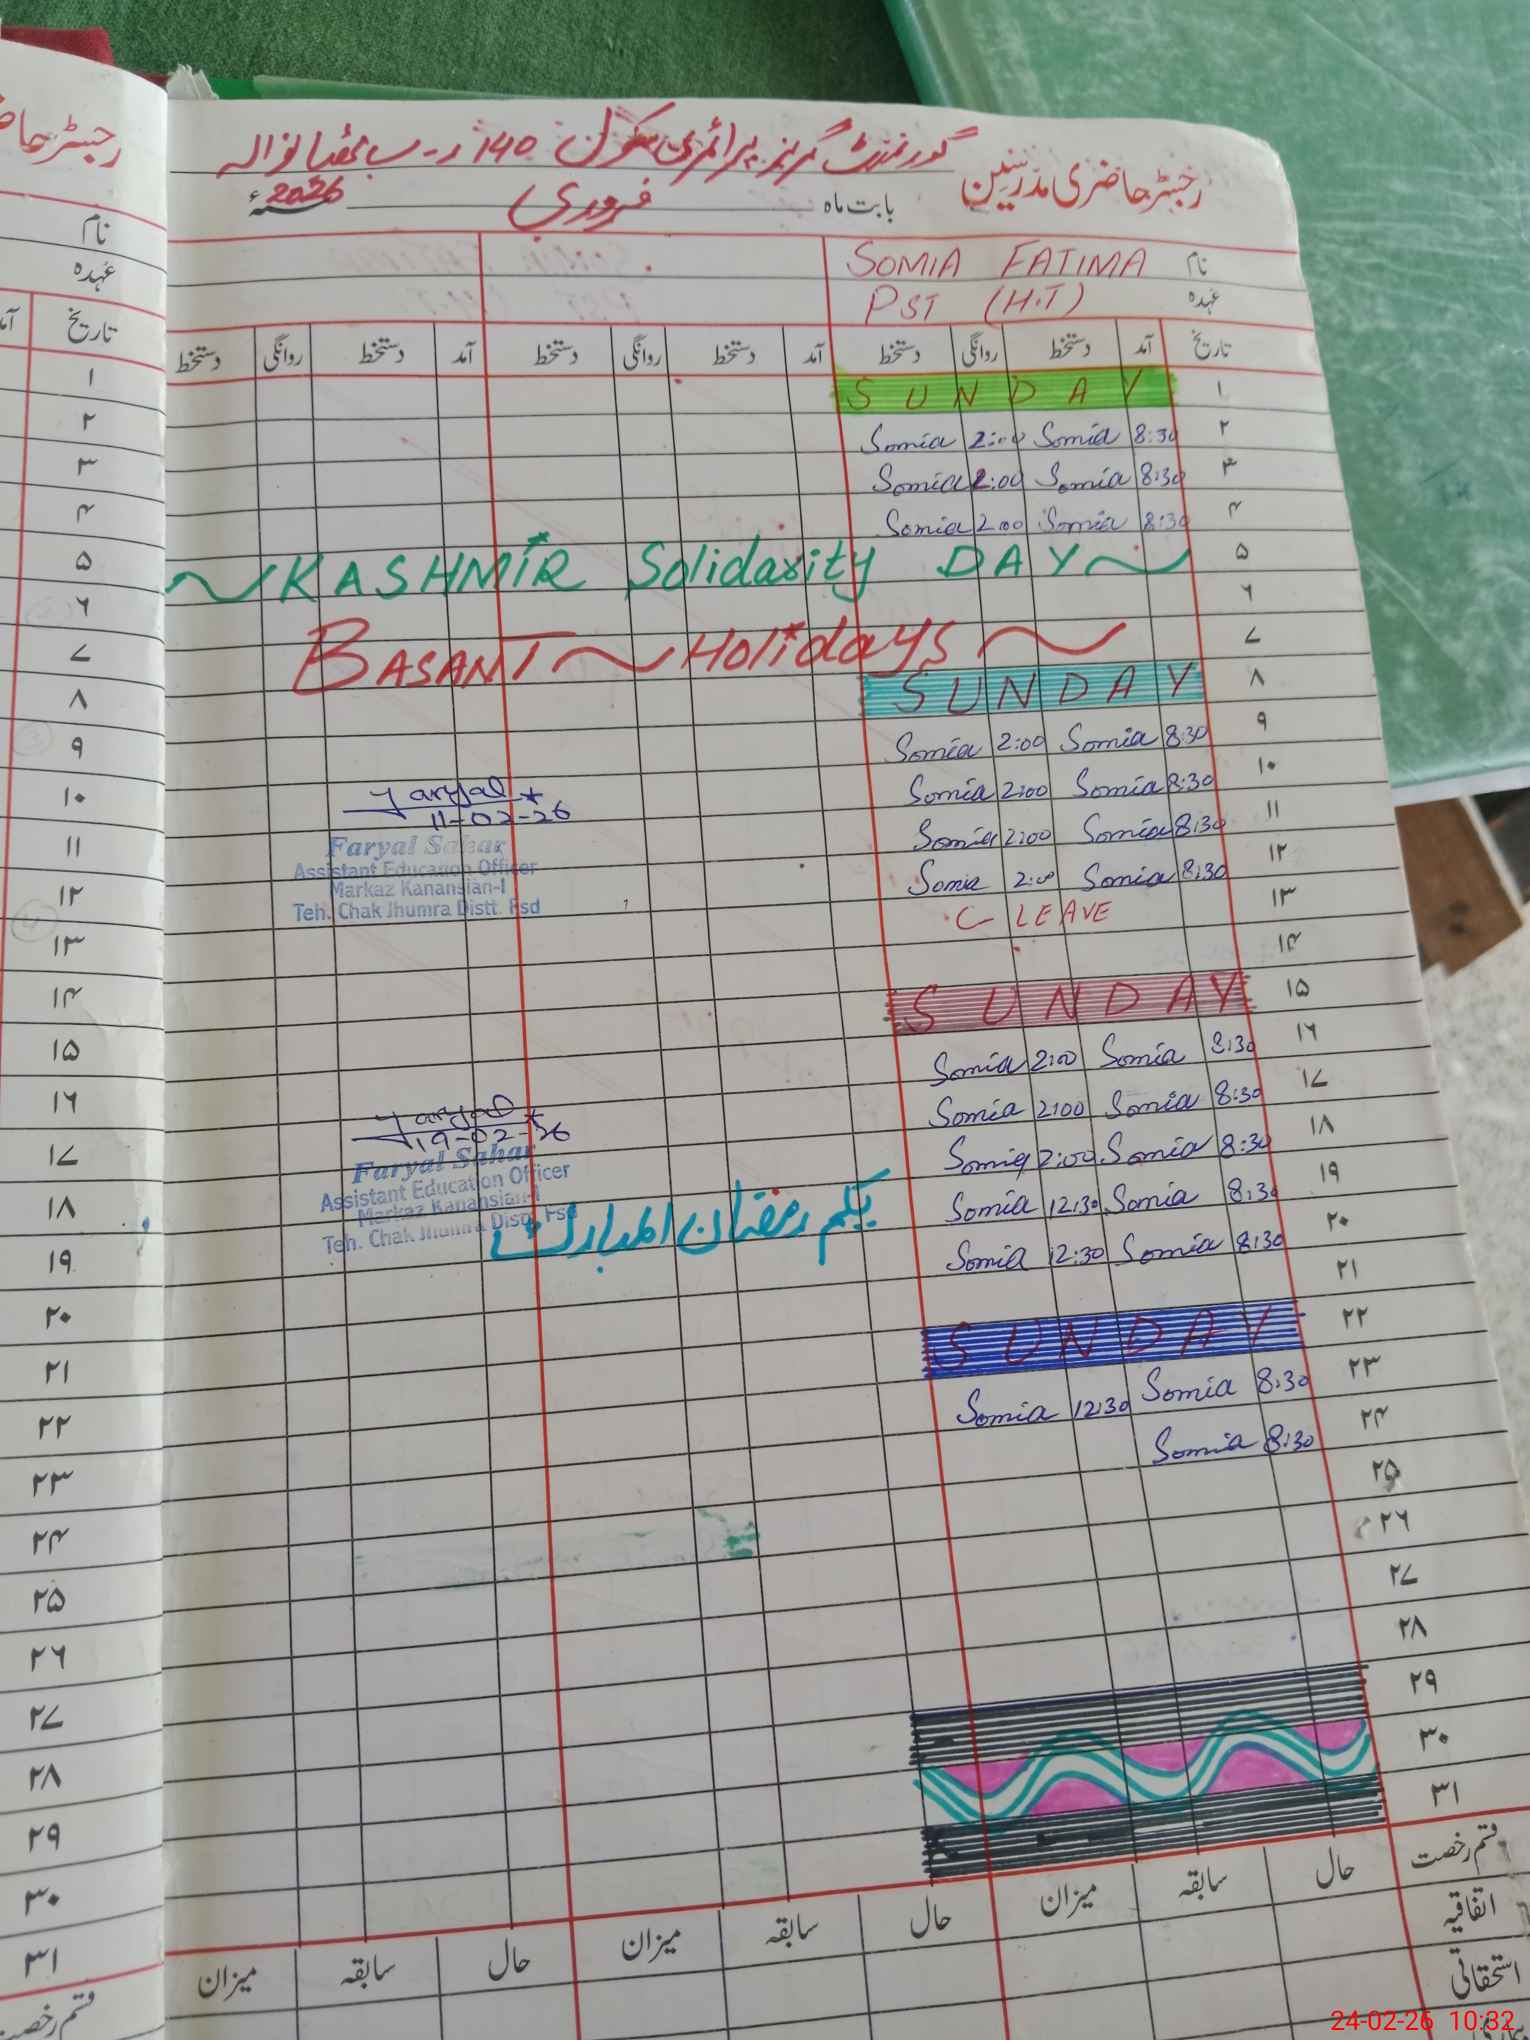 رجسٹر حاضری مدرسین گورنمنٹ گرلز پرائمری سکول 140 ر-ب
بابت ماہ فروری 2026ء
نام SOMIA FATIMA
عہدہ PST (H.T)
تاریخ آمد دستخط روانگی دستخط آمد دستخط روانگی دستخط آمد دستخط روانگی دستخط
۱ SUNDAY
۲ 8:30 Somia 2:00 Somia
۳ 8:30 Somia 2:00 Somia
۴ 8:30 Somia 2:00 Somia
۵ ~KASHMIR Solidarity DAY~
۶
۷ BASANT ~ Holidays ~
۸ SUNDAY
۹ 8:30 Somia 2:00 Somia
۱۰ 8:30 Somia 2:00 Somia
۱۱ 8:30 Somia 2:00 Somia
۱۲ 8:30 Somia 2:00 Somia
۱۳ C-LEAVE
۱۴
۱۵ SUNDAY
۱۶ 8:30 Somia 2:00 Somia
۱۷ 8:30 Somia 2:00 Somia
۱۸ 8:30 Somia 2:00 Somia
۱۹ 8:30 Somia 12:30 Somia یکم رمضان المبارک
۲۰ 8:30 Somia 12:30 Somia
۲۱
۲۲ SUNDAY
۲۳ 8:30 Somia 12:30 Somia
۲۴ 8:30 Somia
۲۵
۲۶
۲۷
۲۸
۲۹
۳۰
۳۱
قسم رخصت حال سابقہ میزان حال سابقہ میزان حال سابقہ میزان
اتفاقیہ
استحقاقی
Faryal
11-02-26
Faryal Sahar
Assistant Education Officer
Markaz Kanansian-I
Teh. Chak Jhumra Distt. Fsd
Faryal
19-02-26
Faryal Sahar
Assistant Education Officer
Markaz Kanansian-I
Teh. Chak Jhumra Distt. Fsd
رجسٹر
نام
عہدہ
تاریخ
۱
۲
۳
۴
۵
۶
۷
۸
۹
۱۰
۱۱
۱۲
۱۳
۱۴
۱۵
۱۶
۱۷
۱۸
۱۹
۲۰
۲۱
۲۲
۲۳
۲۴
۲۵
۲۶
۲۷
۲۸
۲۹
۳۰
۳۱
قسم رخصت
24-02-26 10:32